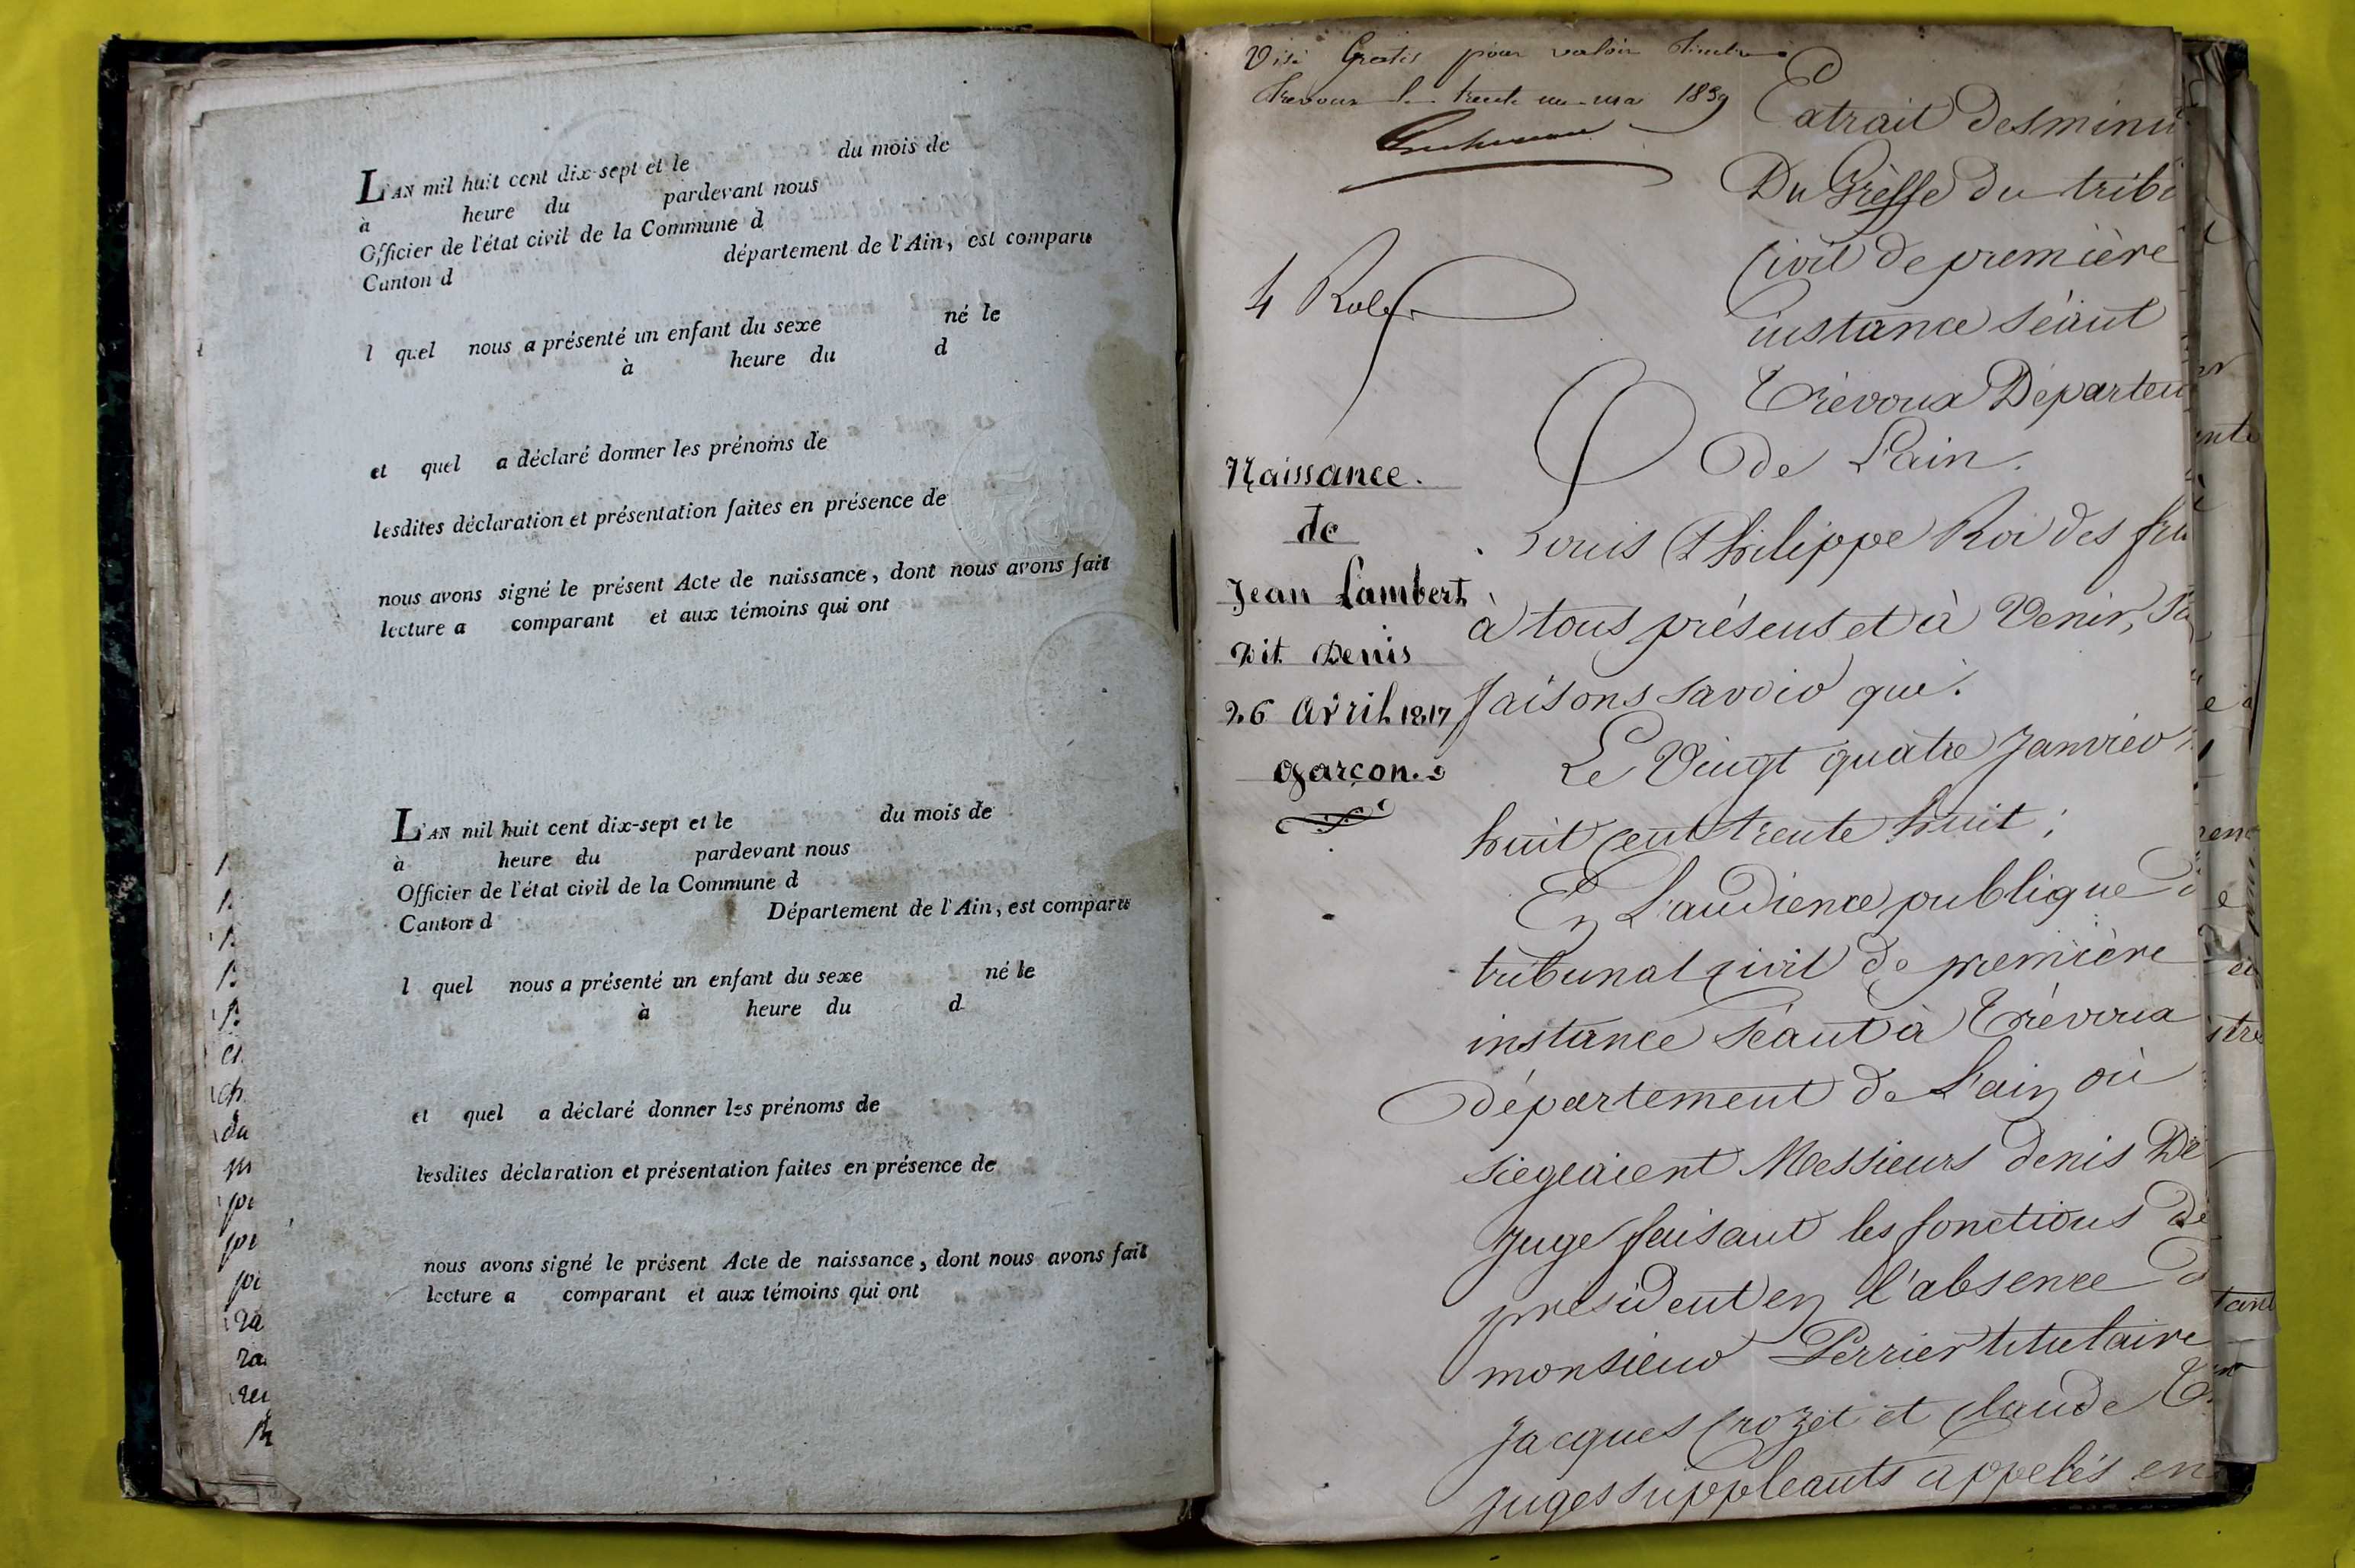 L'AN mil huit cent dix-sept et le du mois de
à heure du pardevant nous
Officier de l'état civil de la Commune d
Canton d département de l'Ain, est comparu
l quel nous a présenté un enfant du sexe né le
à heure du d
et quel a déclaré donner les prénoms de
lesdites déclaration et présentation faites en présence de
nous avons signé le présent Acte de naissance, dont nous avons fait
lecture a comparant et aux témoins qui ont
L'AN mil huit cent dix-sept et le du mois de
à heure du pardevant nous
Officier de l'état civil de la Commune d
Canton d Département de l'Ain, est comparu
l quel nous a présenté un enfant du sexe né le
à heure du d
et quel a déclaré donner les prénoms de
lesdites déclaration et présentation faites en présence de
nous avons signé le présent Acte de naissance, dont nous avons fait
lecture a comparant et aux témoins qui ont
Visé Gratis pour valoir timbre
Trevoux le trente un mai 1839
4 Roles
Naissance.
de
Jean Lambert
dit Denis
26 Avril 1817
garçon.
Extrait des minu
Du Greffe du tribu
Civil de première
instance séant
Trévoux Départem
de L'ain.
Louis Philippe Roi des fra
à tous présens et à Venir, Sa
faisons savoir que.
Le Vingt quatre Janvier
huit cent trente huit;
En L'audience publique d
tribunal civil de première
instance séant à Trévoux
département de L'ain où
siegeaient Messieurs denis De
Juge faisant les fonctions de
président en l'absence d
monsieur Perrier titulaire
Jacques Crozet et claude
juges suppléants appelés en